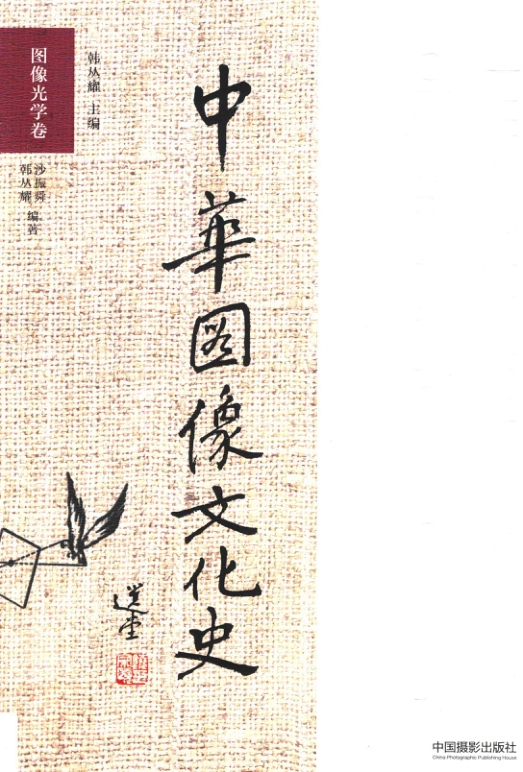 图像光学卷
韩丛耀 主编
沙振舜
韩丛耀 编著
中華图像文化史
选堂
中国摄影出版社
China Photographic Publishing House